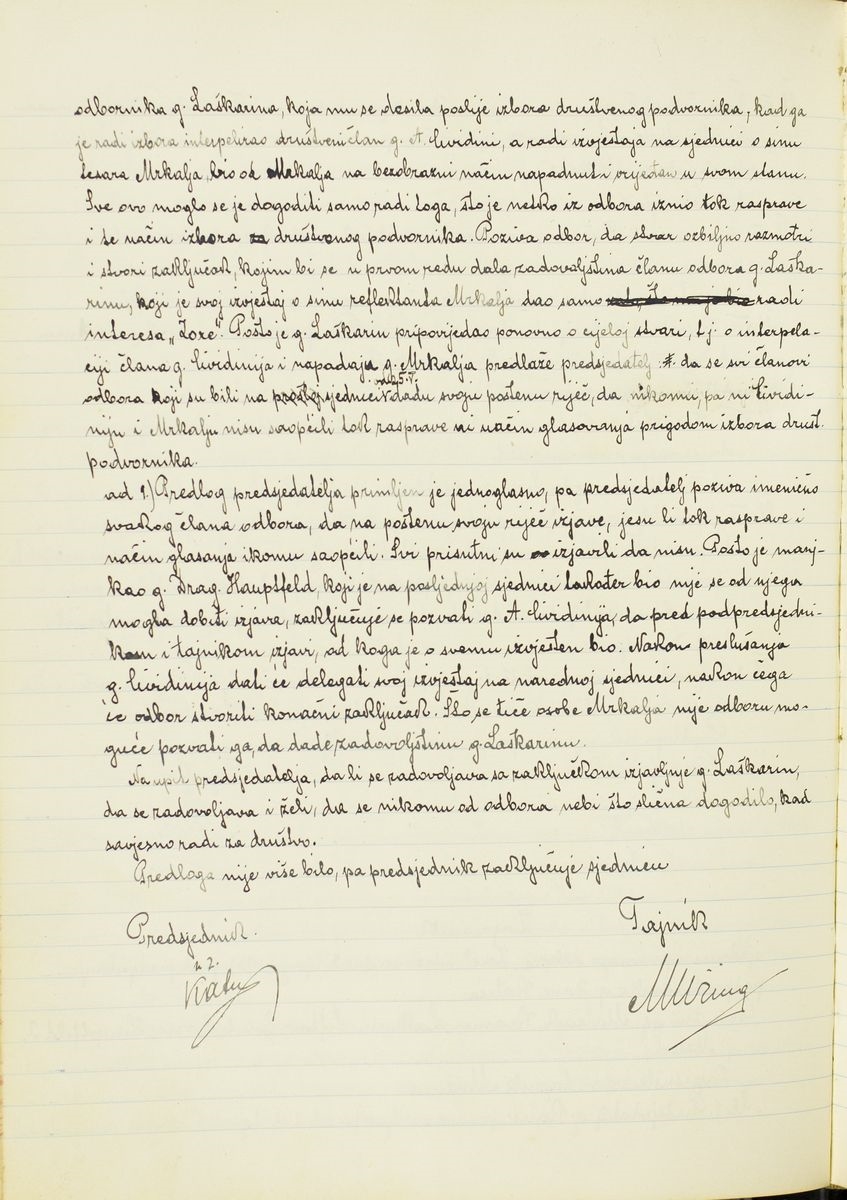 odbornika g. Laškarina, koja mu se desila poslije izbora društvenog podvornika, kad ga
je radi izbora interpelirao društveni član g. A. Cividini, a radi izvještaja na sjednici o sinu
tesara Mrkalja, bio od Mrkalja na bezobrazni način napadnut i vrijeđan u svom stanu.
Sve ovo moglo se je dogoditi samo radi toga, što je netko iz odbora iznio tok rasprave
i te način izbora za društvenog podvornika. Poziva odbor, da stvar ozbiljno razmotri
i stvori zaključak, kojim bi se u prvom redu dala zadovoljština članu odbora g. Laška-
rinu, koji je svoj izvještaj o sinu reflektanta Mrkalja dao samo radi
interesa „Zore". Pošto je g. Laškarin pripovjedao ponovno o cijeloj stvari, t.j. o interpela-
ciji člana g. Cividinija i napadaju g. Mrkalja predlaže predsjedatelj da se svi članovi
odbora koji su bili na prošloj sjednici od 25.V. dadu svoju poštenu riječ, da nikomu, pa ni Cividi-
niju i Mrkalju nisu saopćili tok rasprave ni način glasovanja prigodom izbora društ.
podvornika.
ad 1.) Predlog predsjedatelja primljen je jednoglasno, pa predsjedatelj poziva imenično
svakog člana odbora, da na poštenu svoju riječ izjave, jesu li tok rasprave i
način glasanja ikomu saopćili. Svi prisutni su izjavili da nisu. Pošto je manj-
kao g. Drag. Hauptfeld, koji je na posljednjoj sjednici također bio nije se od njega
mogla dobiti izjava, zaključuje se pozvati g. A. Cividinija, da pred podpredsjedni-
kom i tajnikom izjavi, od koga je o svemu izvješten bio. Nakon preslušanja
g. Cividinija dati će delegati svoj izvještaj na narednoj sjednici, nakon čega
će odbor stvoriti konačni zaključak. Što se tiče osobe Mrkalja nije odboru mo-
guće pozvati ga, da dade zadovoljštinu g. Laškarinu.
Na upit predsjedatelja, da li se zadovoljava sa zaključkom izjavljuje g. Laškarin,
da se zadovoljava i želi, da se nikomu od odbora nebi što slična dogodilo, kad
savjesno radi za društvo.
Predloga nije više bilo, pa predsjednik zaključuje sjednicu
Predsjednik.
Tajnik